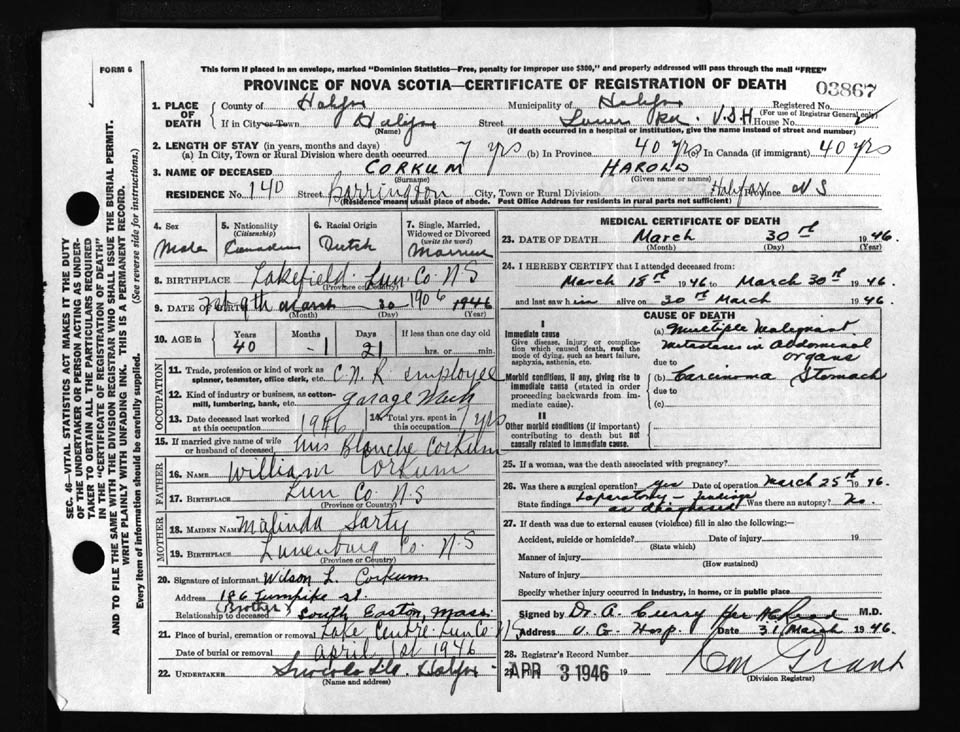 FORM 6
This form if placed in an envelope, marked "Dominion Statistics—Free, penalty for improper use $300," and properly addressed will pass through the mail "FREE"
PROVINCE OF NOVA SCOTIA—CERTIFICATE OF REGISTRATION OF DEATH
03867
1. PLACE OF DEATH
County of Halifax Municipality of Halifax Registered No.
(For use of Registrar General only)
If in City or Town Halifax Street V.G.H House No.
(Name) (If death occurred in a hospital or institution, give the name instead of street and number)
2. LENGTH OF STAY (in years, months and days)
(a) In City, Town or Rural Division where death occurred 7 yrs (b) In Province 40 yrs (c) In Canada (if immigrant) 40 yrs
3. NAME OF DECEASED CORKUM HAROLD
(Surname) (Given name or names)
RESIDENCE No. 140 Street Barrington City, Town or Rural Division Halifax Province N S
(Residence means usual place of abode. Post Office Address for residents in rural parts not sufficient)
4. Sex Male
5. Nationality (Citizenship) Canadian
6. Racial Origin Dutch
7. Single, Married, Widowed or Divorced (write the word) Married
8. BIRTHPLACE Lakefield Lun. Co N S
(Province or Country)
9. DATE OF BIRTH Feb 9th March 30 1906 1946
(Month) (Day) (Year)
10. AGE in Years Months Days If less than one day old
40 1 21 hrs. or min.
OCCUPATION
11. Trade, profession or kind of work as spinner, teamster, office clerk, etc. C.N.R employee
12. Kind of industry or business, as cotton-mill, lumbering, bank, etc. garage Mech
13. Date deceased last worked at this occupation 1946
14. Total yrs. spent in this occupation 7 yrs
15. If married give name of wife or husband of deceased Mrs Blanche Corkum
FATHER
16. NAME William Corkum
17. BIRTHPLACE Lun Co N.S
(Province or Country)
MOTHER
18. MAIDEN NAME Malinda Sarty
19. BIRTHPLACE Lunenburg Co. N.S
(Province or Country)
20. Signature of informant Wilson L. Corkum
Address 186 Turnpike st.
Relationship to deceased (Brother) South Easton, Mass.
21. Place of burial, cremation or removal Lake Centre Lun Co N S
Date of burial or removal April 1st 1946
22. UNDERTAKER Halifax
(Name and address)
MEDICAL CERTIFICATE OF DEATH
23. DATE OF DEATH March 30th 1946.
(Month) (Day) (Year)
24. I HEREBY CERTIFY that I attended deceased from
March 18th 1946 to March 30th 1946
and last saw him alive on 30th March 1946.
CAUSE OF DEATH
I
Immediate cause
Give disease, injury or complication which caused death, not the mode of dying, such as heart failure, asphyxia, asthenia, etc.
(a) Multiple Malignant
Metastases in Abdominal
organs
due to
Morbid conditions, if any, giving rise to immediate cause (stated in order proceeding backwards from immediate cause).
(b) Carcinoma Stomach
due to
(c)
II
Other morbid conditions (if important) contributing to death but not causally related to immediate cause.
25. If a woman, was the death associated with pregnancy?
26. Was there a surgical operation? yes Date of operation March 25th 1946.
State findings Laparatomy - findings as diagnosed Was there an autopsy? No.
27. If death was due to external causes (violence) fill in also the following:—
Accident, suicide or homicide? Date of injury 19
(State which)
Manner of injury
(How sustained)
Nature of injury
Specify whether injury occurred in industry, in home, or in public place
Signed by Dr. A. Curry Per M.D.
Address V. G. Hosp. Date 31 March 1946.
28. Registrar's Record Number
29. APR 3 1946 19
Grant
(Division Registrar)
SEC. 46—VITAL STATISTICS ACT MAKES IT THE DUTY
OF THE UNDERTAKER OR PERSON ACTING AS UNDER-
TAKER TO OBTAIN ALL THE PARTICULARS REQUIRED
IN THE "CERTIFICATE OF REGISTRATION OF DEATH"
AND TO FILE THE SAME WITH THE DIVISION REGISTRAR WHO SHALL ISSUE THE BURIAL PERMIT.
WRITE PLAINLY WITH UNFADING INK. THIS IS A PERMANENT RECORD.
Every item of information should be carefully supplied. (See reverse side for instructions.)